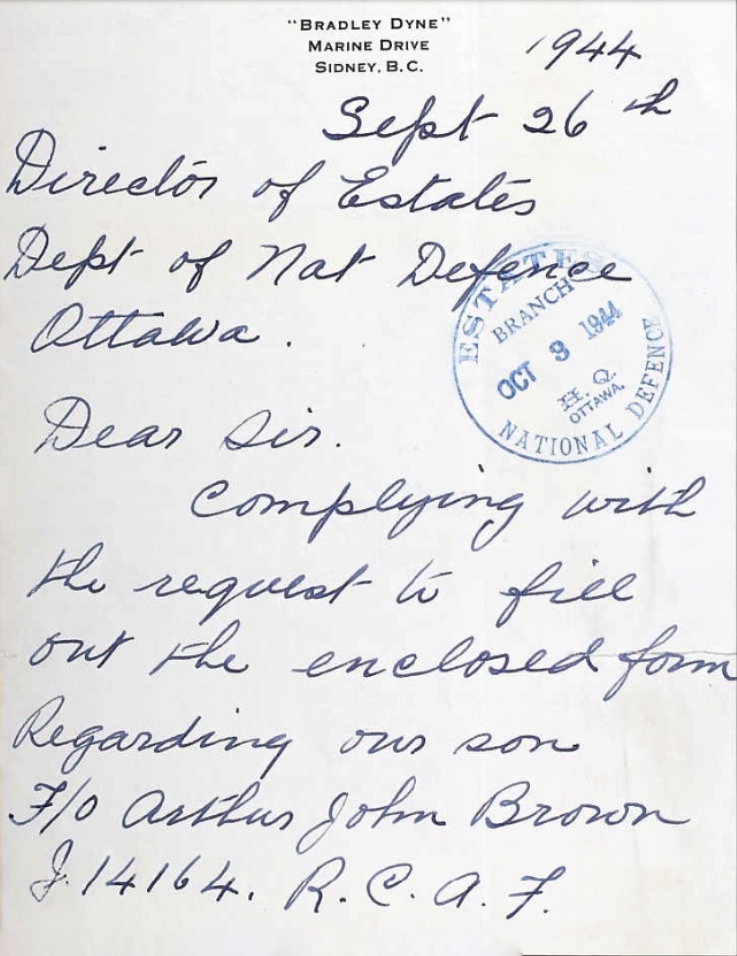 "BRADLEY DYNE"
MARINE DRIVE
SIDNEY, B.C.
1944
Sept 26th
Director of Estates
Dept of Nat Defence
Ottawa.
ESTATES
BRANCH
OCT 3 1944
H. Q.
OTTAWA.
NATIONAL DEFENCE
Dear Sir.
Complying with
the request to fill
out the enclosed form
Regarding our son
F/O Arthur John Brown
J.14164. R.C.A.F.